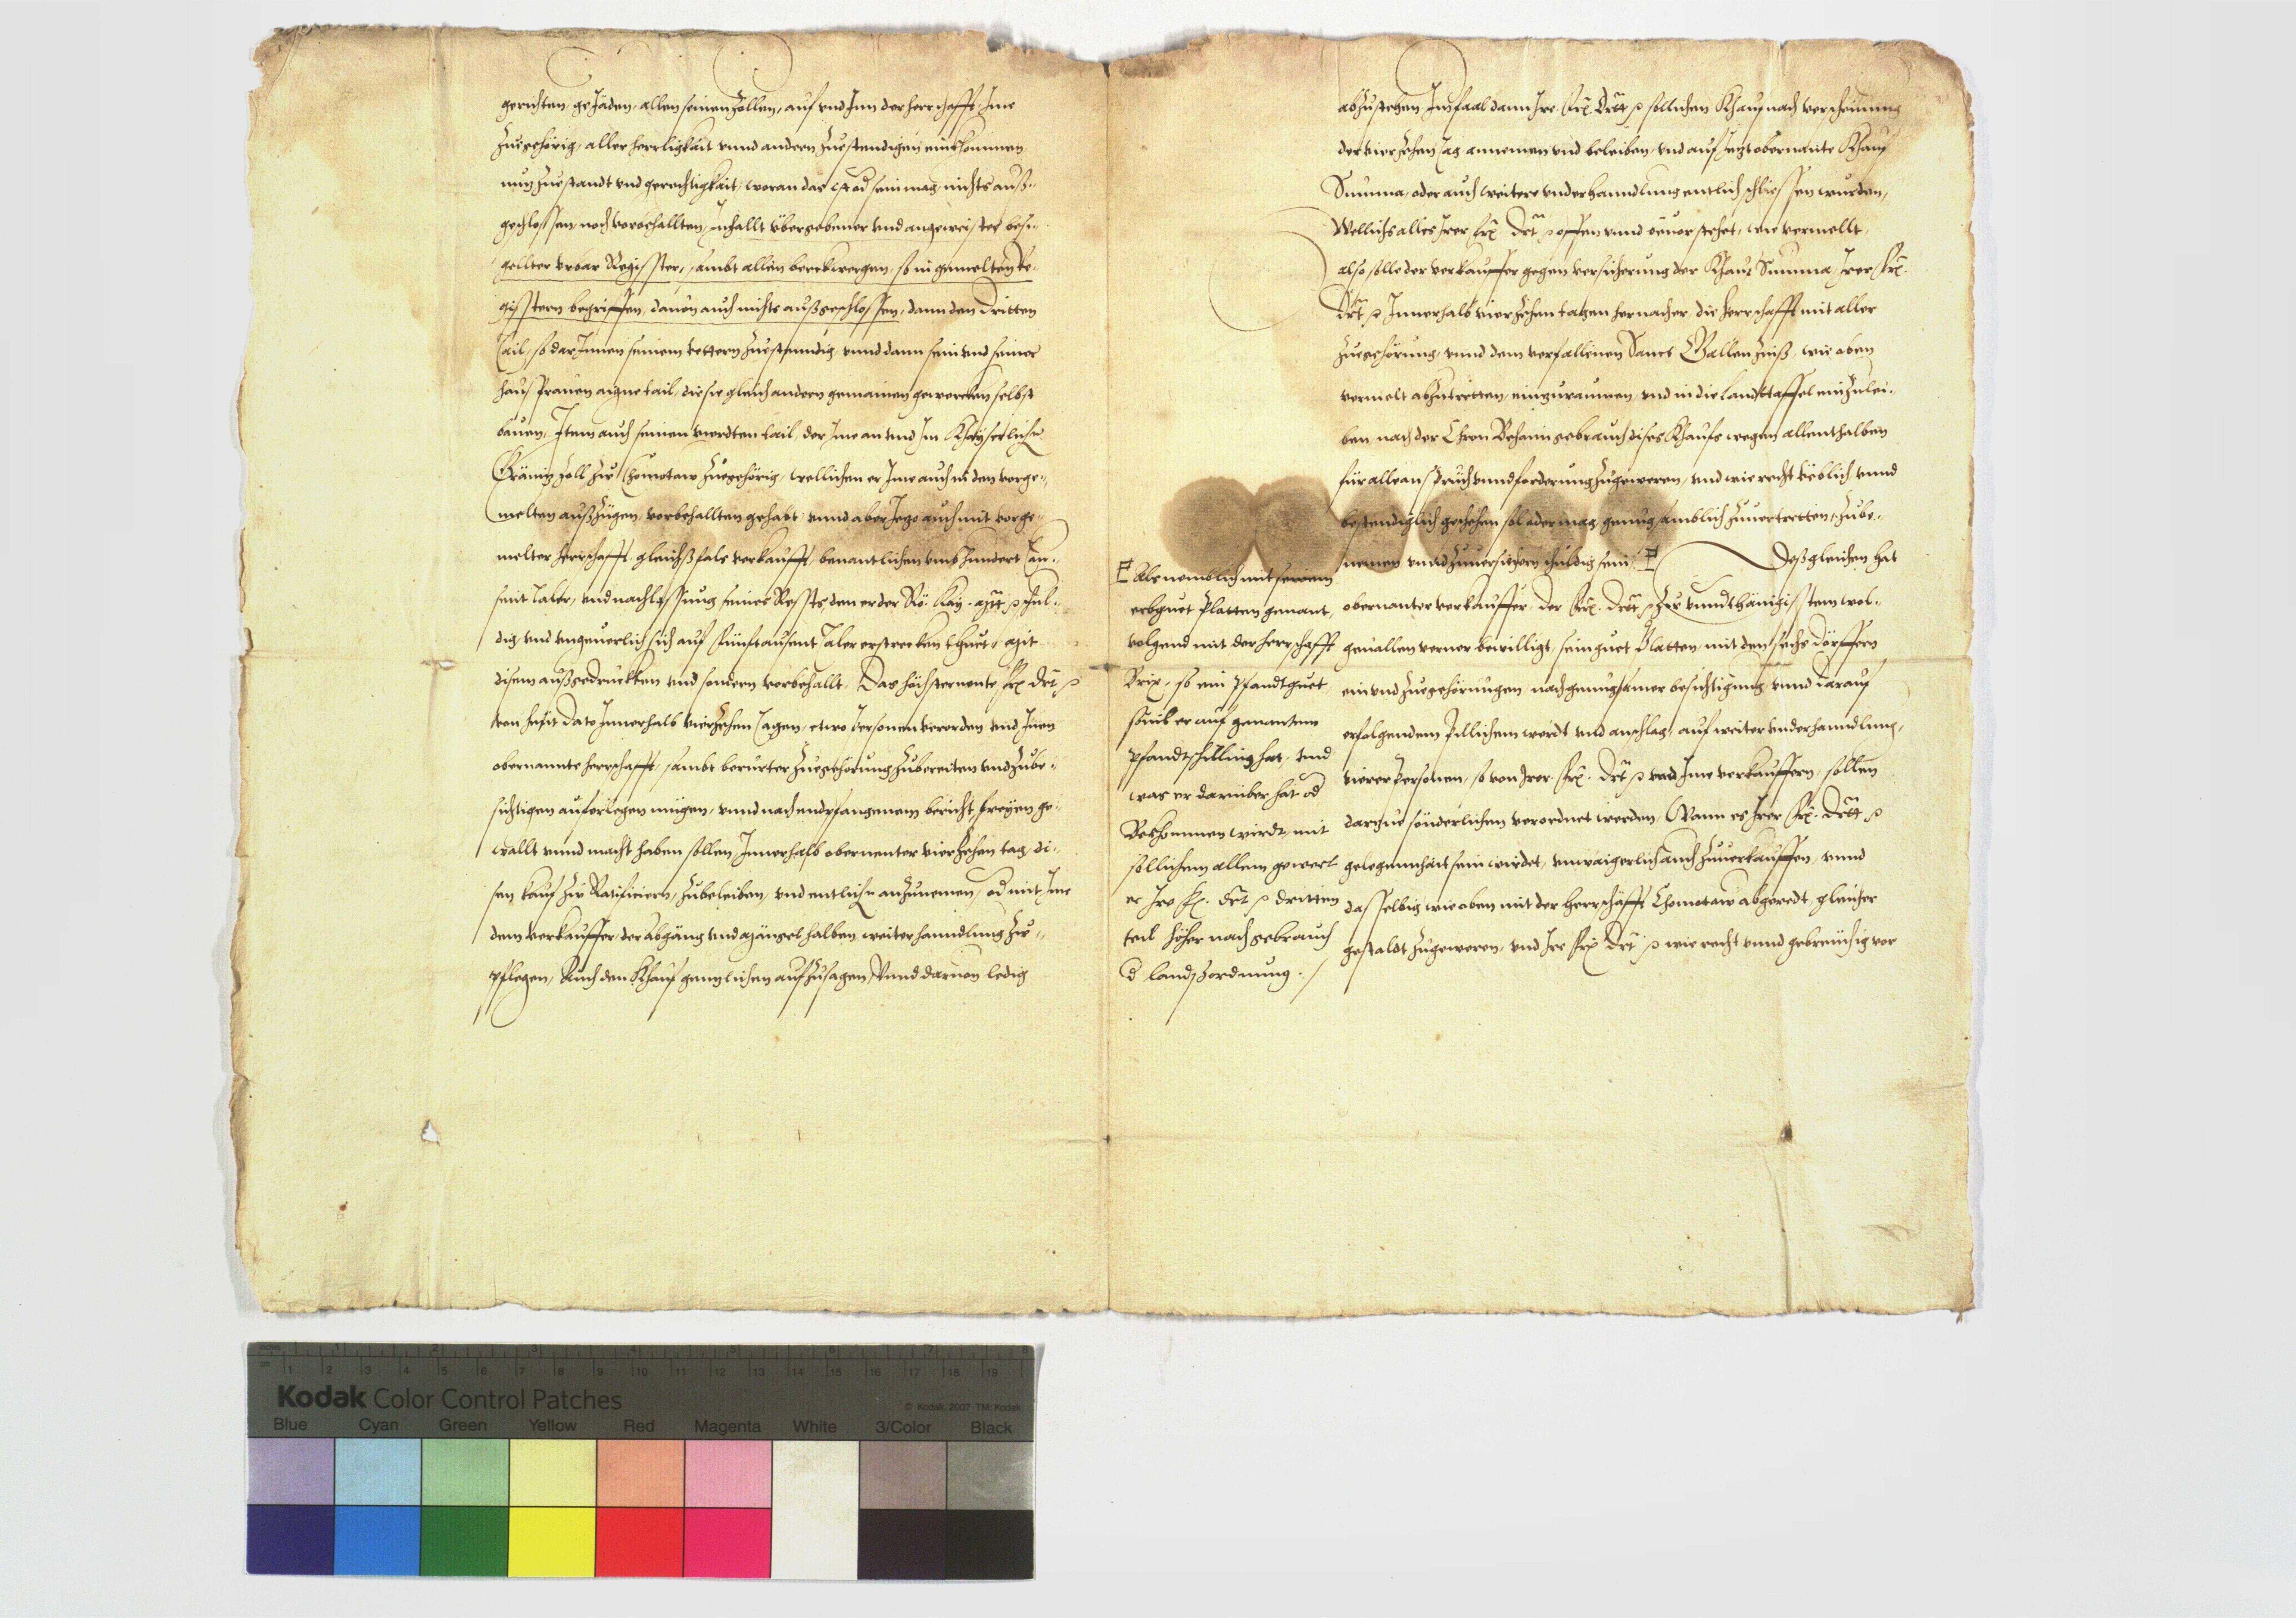 gerichten, gejäden, allen seinen Zöllen, auf vnd Inn der herrschafft Ime
Zuegehörig, aller herrligkait vnnd andern Zuestendigen einkhommen
nutz Zuestandt vnd gerechtigkait, woran das ist od sein mag, nichts auß-
geschlossen, noch vorbehallten, Inhallt vbergebener vnd angeweister besi-
gellter vrbar Register, sambt allen berckwergen, so in gemelten Re-
gisstern begriffen, dauon auch nichts außgeschlossen, dann den dritten
tail, so darInnen seinem vettern Zuestendig, vnnd dann sein vnd seiner
hausfrauen aigne tail, die sie gleich andern gemainen gewercken selbst
bauen, Item auch seinen vierdten tail, der Ime an vnd Im Khayserlichen
Gränitz Zoll Zu Chomotaw Zuegehörig, wellichen er Ime auch in den vorge-
melten außZügen, vorbehallten gehabt vnnd aber Jezo auch mit vorge-
melter herrschafft, gleichßfals verkaufft, benantlichen vmb hundert tau-
sent taler, vnd nachlassung seines Rests den er der Rö. Kay. Mt. schul-
dig vnd vngeuerlich sich auf fünftausent taler erstrecken thuet, Mit
disem außgedruckten vnd sondern vorbehallt, Das höchsternente frl. Drt.
von heut dato Innerhalb vierZehen tagen, etwo Personen verorden vnd Inen
obernannte herrschafft, sambt berürter Zuegehörung Zubereiten vnd Zube-
sichtigen auferlegen mügen, vnnd nach endpfangenem bericht, freyen ge-
wallt vnnd macht haben sollen Innerhalb obernenter vierZehen tag, di-
sen kauf Zu Ratificiern, Zubeleiben, vnd entlichen anZunemen, od mit Ime
dem verkauffer, der Abgäng vnd Mängel halben weiter hanndlung Zu-
pflegen, Auch den Khauf genntzlichen aufZusagen, Vnnd daruon ledig
abZustehen Im faal dann Ire frl. Drt. sollichen Khauf nach verscheinung
der vierZehen tag annemen vnd beleiben, vnd auf Jezt obernante Khauf
Summa, oder auch weitere vnderhanndlung entlich schliessen wurden,
Wellichs alles Irer frl. Drt. offen vnnd beuor stehet, wie vermellt,
also solle der verkauffer gegen versicherung der Khauf Summa, Irer frl.
Drt. Innerhalb vierZehen tagen hernacher die herrschafft mit aller
Zuegehörung, vnnd dem verfallenen Sanct Gallen Zinß, wie oben
vermelt abZutretten, einzuraumen, vnd in die Landttaffel einZulei-
ben, nach der Chron Behaim gebrauch dises Khaufs wegen allenthalben
für alle anspruch vnnd forderung Zugeweren, vnd wie recht vöblich vnnd
bestendiglich geschehen sol oder mag, genugsamblich Zuuertretten, Zube-
nemen vnnd Zuuersichern schuldig sein. Deßgleichen hat
obernanter verkauffer, der frl. Drt. Zu vnndthänigistem wol-
geuallen verner bewilligt, sein guet Platten, mit den sechs dörffern
ein vnd Zuegehörungen, nach genugsamer besichtigung vnnd darauf
erfolgendem pillichem werdt vnd anschlag, auf weiter vnderhanndlung,
vierer Personen, so von Irer frl. Drt. vnd Ime verkauffern, sollen
darzue sonderlichen verordnet werden, Wann es Irer frl. Drt.
gelegennhait sein wirdet, vnwaigerlich auch Zuuerkauffen, vnnd
dasselbig wie oben mit der herrschafft Chomotaw abgeredt, gleicher
gestaldt Zugeweren, vnd Ire frl. Drt. wie recht vnnd gebreuchig vor
Als nemblich mit seinem
erbguet Platten genant,
volgend mit der herrschafft
Brix, so ein Pfandtguet
souil er auf genantem
Pfandtschilling hat, vnd
was er darüber hat od
Bekhommen wirdt, mit
sollichem allem gewert
er Ire frl. Drt. dritten
teil höher nach gebrauch
d landßordnung.
Kodak Color Control Patches
© Kodak, 2007 TM: Kodak
Blue Cyan Green Yellow Red Magenta White 3/Color Black